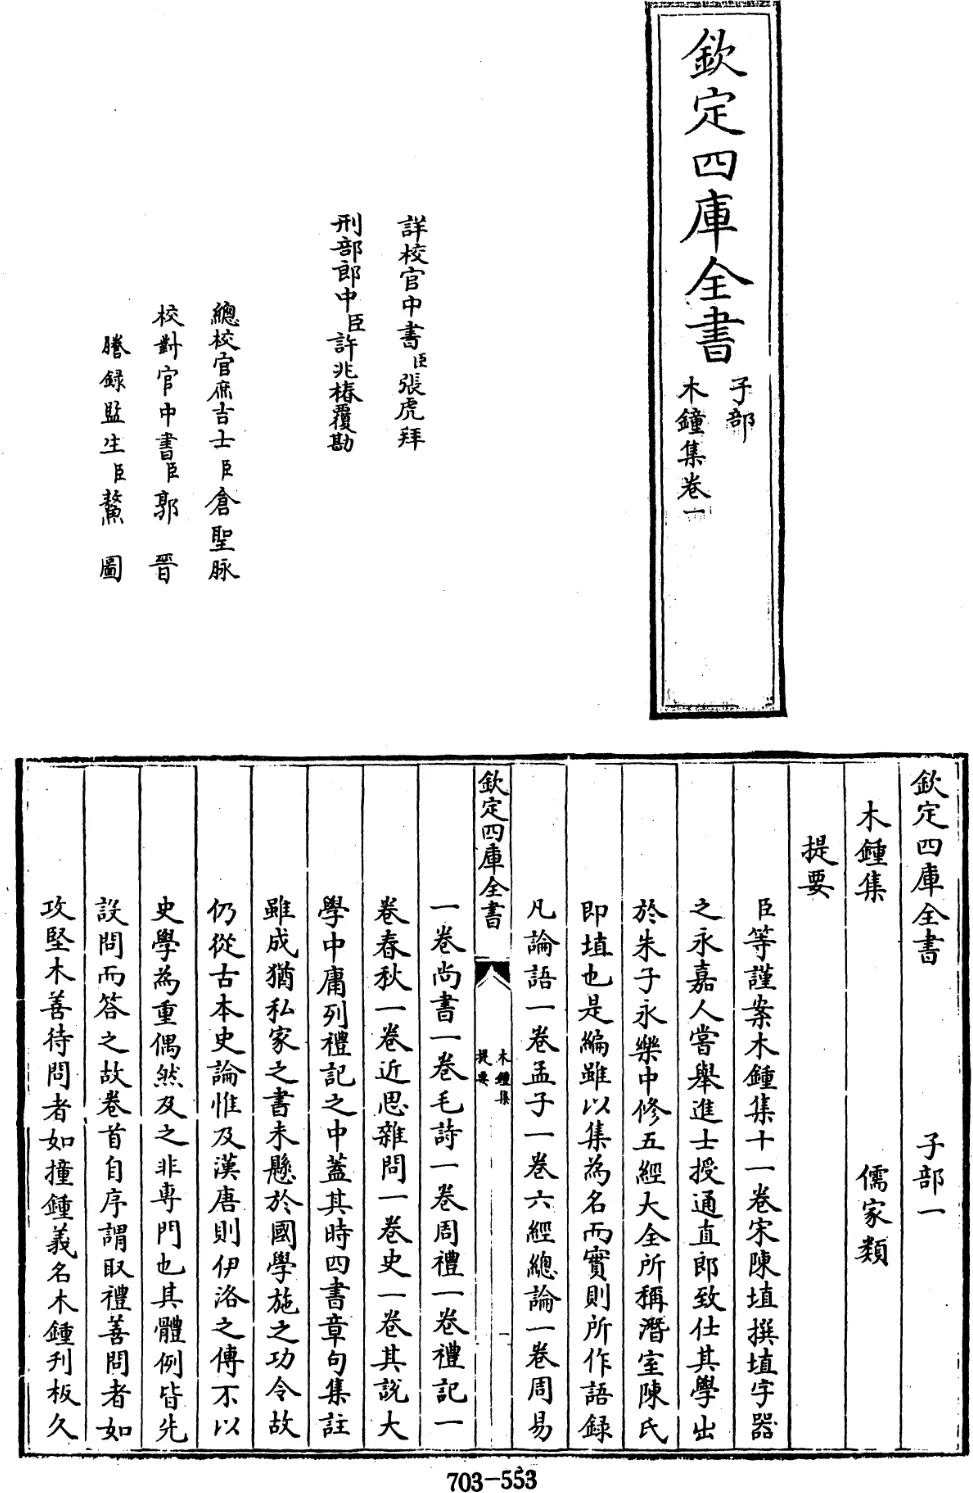 欽定四庫全書
子部
木鐘集卷一
詳校官中書臣張虎拜
刑部郎中臣許兆椿覆勘
總校官庶吉士臣倉聖脉
校對官中書臣郭晉
謄錄監生臣鰲圖
欽定四庫全書 子部一
木鍾集 儒家類
提要
臣等謹案木鍾集十一卷宋陳埴撰埴字器
之永嘉人嘗舉進士授通直郎致仕其學出
於朱子永樂中修五經大全所稱潛室陳氏
即埴也是編雖以集為名而實則所作語録
凡論語一卷孟子一卷六經總論一卷周易
欽定四庫全書
木鍾集
提要
一
一卷尚書一卷毛詩一卷周禮一卷禮記一
卷春秋一卷近思雜問一卷史一卷其說大
學中庸列禮記之中蓋其時四書章句集註
雖成猶私家之書未懸於國學施之功令故
仍從古本史論惟及漢唐則伊洛之傳不以
史學為重偶然及之非専門也其體例皆先
設問而答之故卷首自序謂取禮善問者如
攻堅木善待問者如撞鍾義名木鍾刊板久
703-553